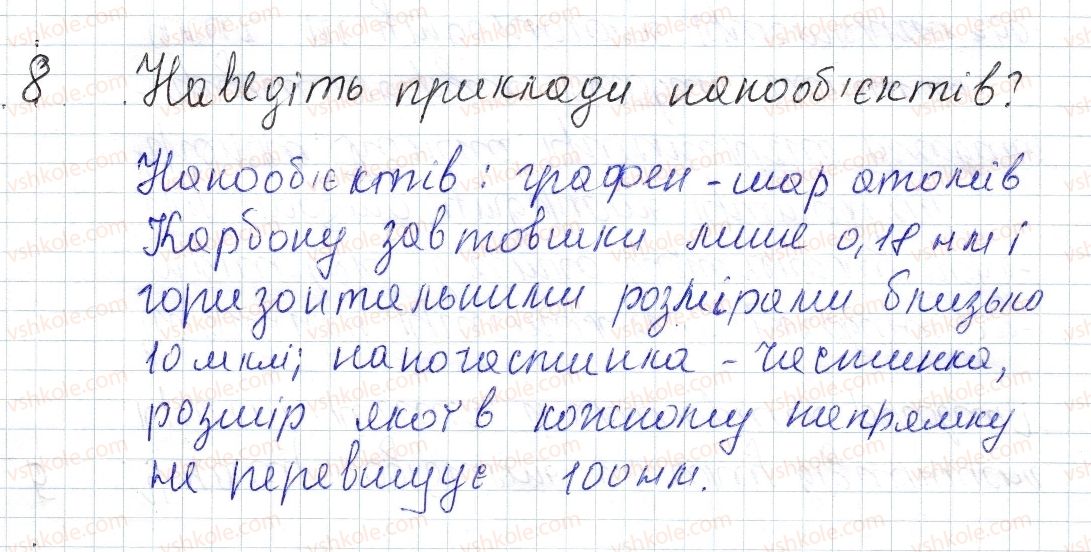 8 Наведіть приклади нанооб'єктів?
Нанооб'єктів: графен - шар атомів
Карбону завтовшки лише 0,18 нм і
горизонтальними розмірами близько
10 мкм; наночастинка - частинка,
розмір якої в кожному напрямку
не перевищує 100 нм.